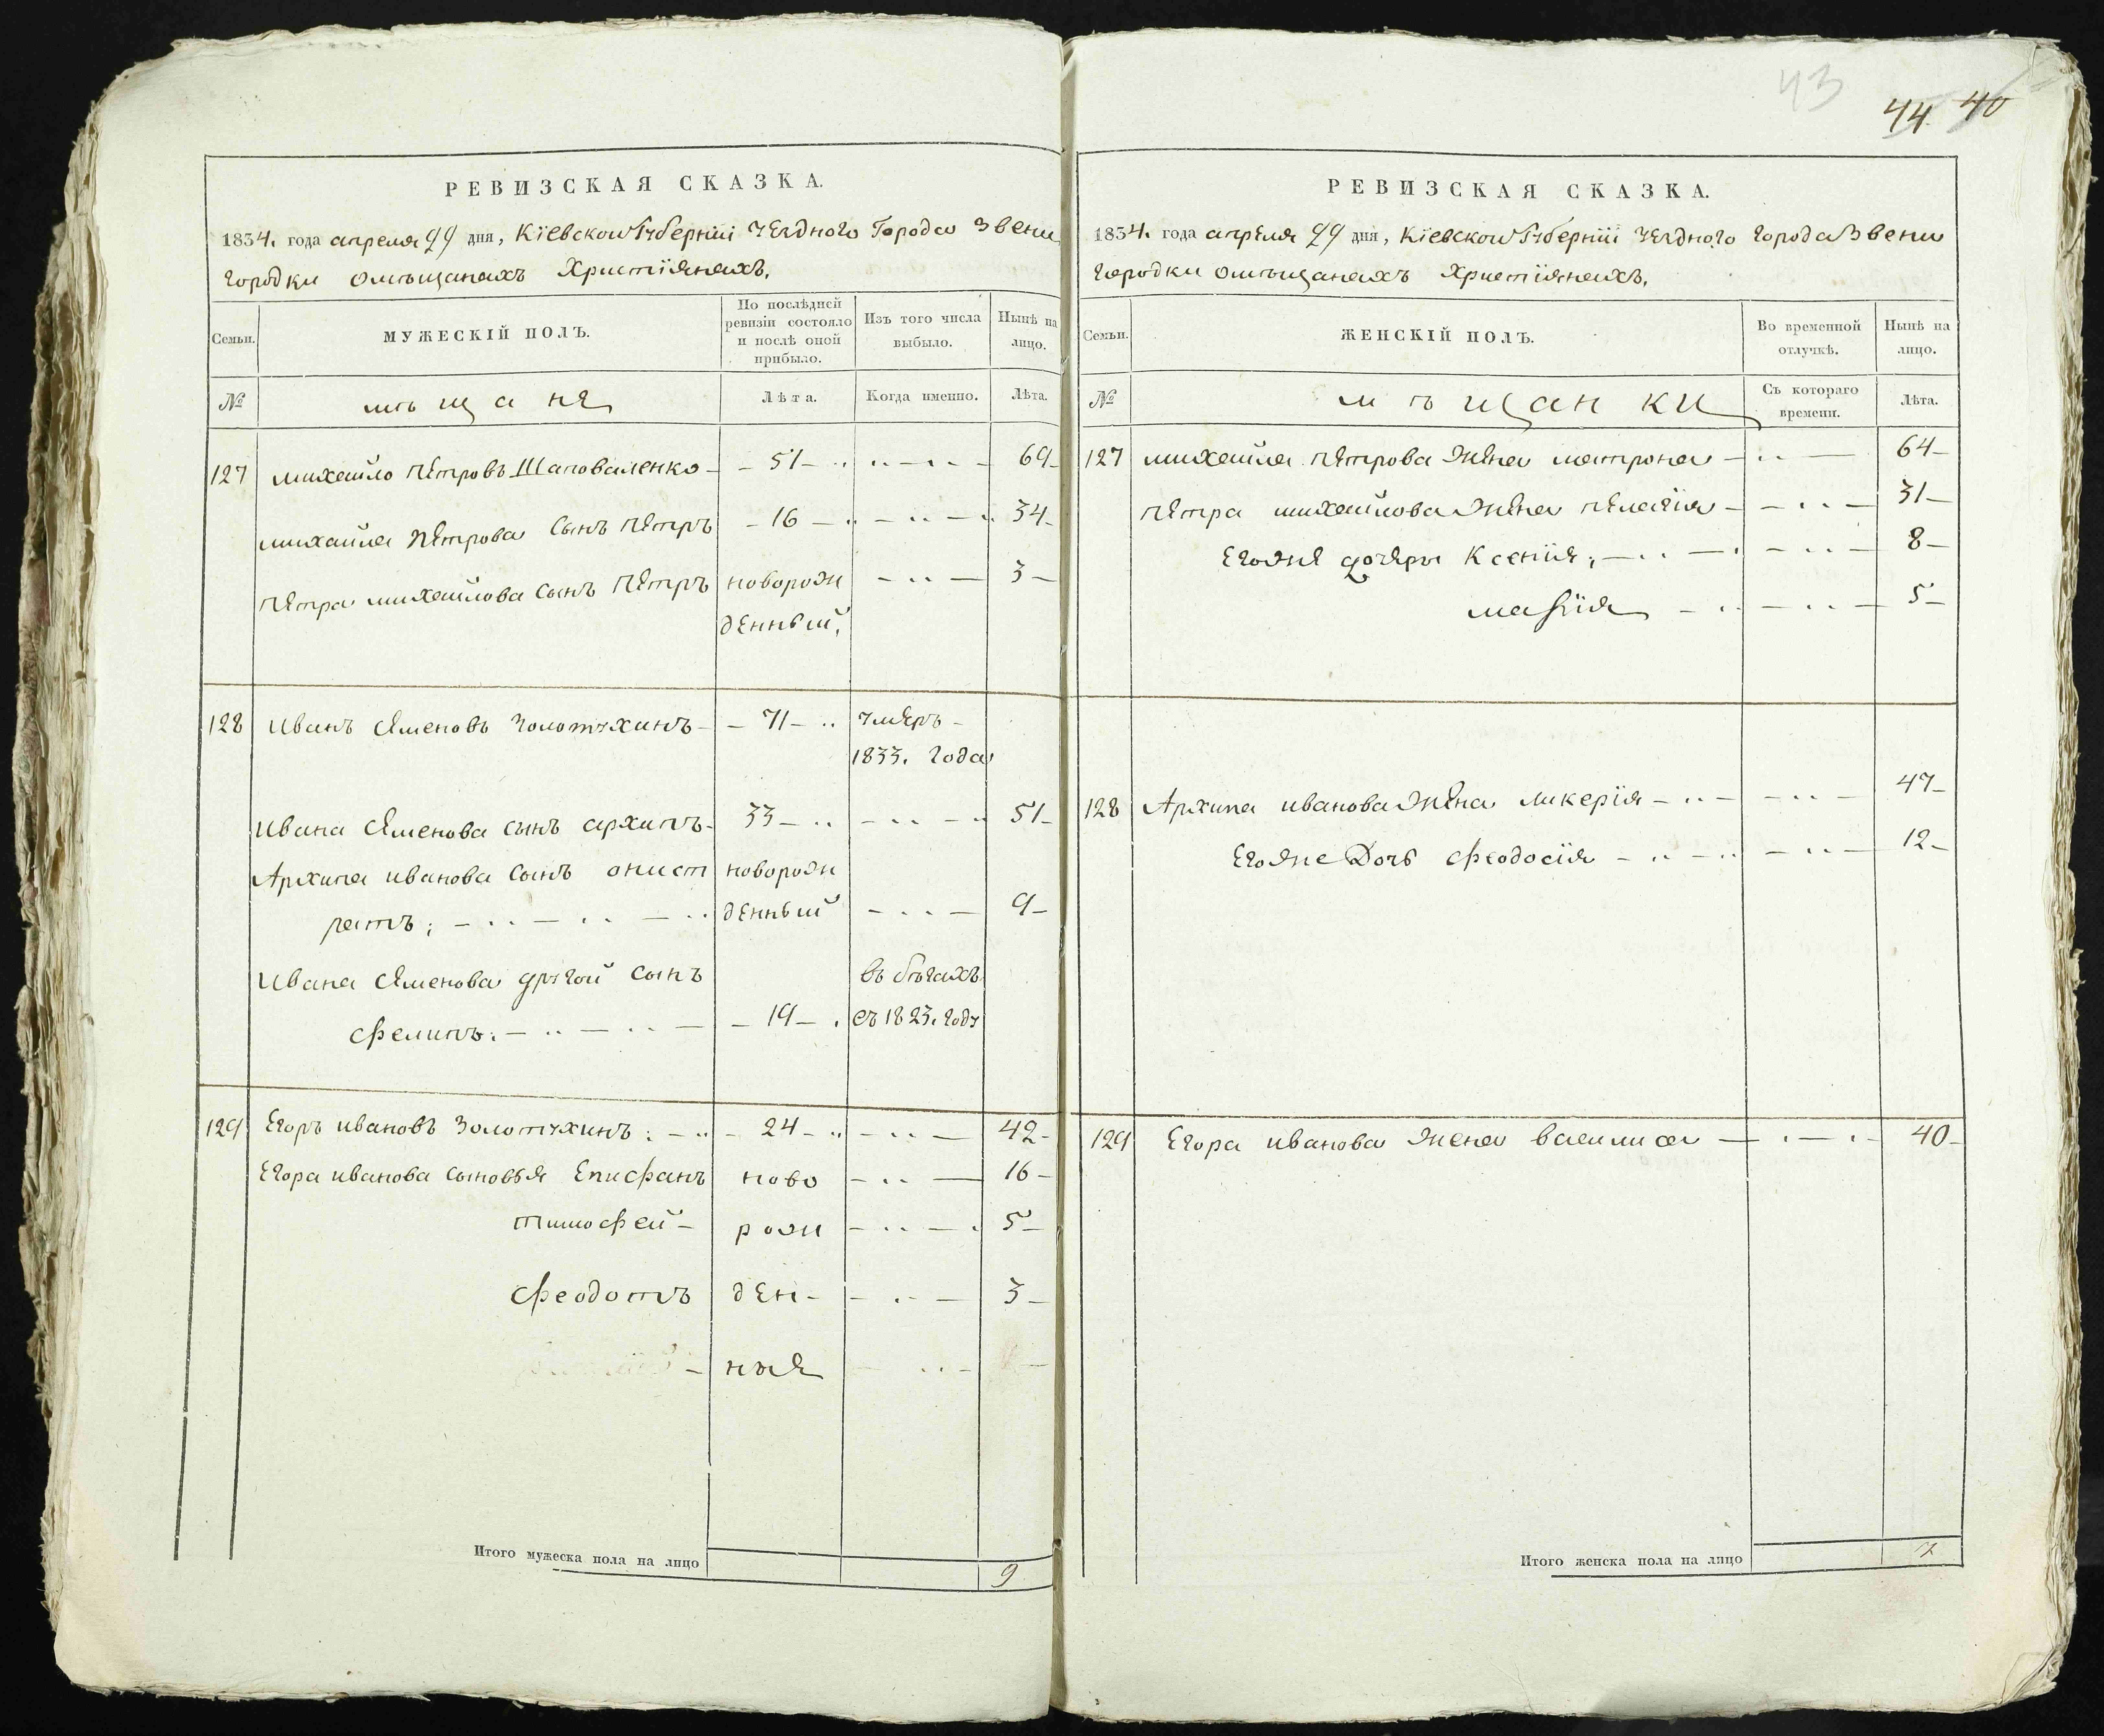 43
44 40
РЕВИЗСКАЯ СКАЗКА.
1834. года апреля 29 дня, Кіевской Губерніи уезднаго Города Звени
городки омѣщанахъ Христіянахъ.
Семьи.
МУЖЕСКІЙ ПОЛЪ.
По послѣдней
ревизіи состояло
и послѣ оной
прибыло.
Изъ того числа
выбыло.
Нынѣ на
лицо.
№
мѣщане
Лѣта.
Когда именно.
Лѣта.
127 михайло Петровъ Шаповаленко - 51 - 69
михайла Петрова сынъ Петръ - 16 - 34
Петра михайлова сынъ Петръ новорож - 3
денный.
128 Иванъ Семеновъ Золотухинъ - 71 - умеръ
1833. года
Ивана Семенова сынъ архипъ - 33 - 51
Архипа иванова сынъ онист новорож
ратъ; денный - 9
Ивана Семенова другой сынъ въ бѣгахъ
Филипъ. - 19 - съ 1823. году
129 Егоръ ивановъ Золотухинъ: - 24 - 42
Егора иванова сыновья Епифанъ ново - 16
тимофей - рож - 5
Феодотъ ден - 3
ные
Итого мужеска пола на лицо 9
РЕВИЗСКАЯ СКАЗКА.
1834. года апреля 29 дня, Кіевской Губерніи уезднаго города Звени
городки омѣщанахъ Христіянахъ.
Семьи.
ЖЕНСКІЙ ПОЛЪ.
Во временной
отлучкѣ.
Нынѣ на
лицо.
№
мѣщанки
Съ котораго
времени.
Лѣта.
127 михайла Петрова жена матрона - 64
Петра михайлова жена Пелагія - 31
Егоже дочери Ксенія; - 8
марія - 5
128 Архипа иванова жена ликерія - 47
Егоже Дочь Феодосія - 12
129 Егора иванова жена василиса - 40
Итого женска пола на лицо 7